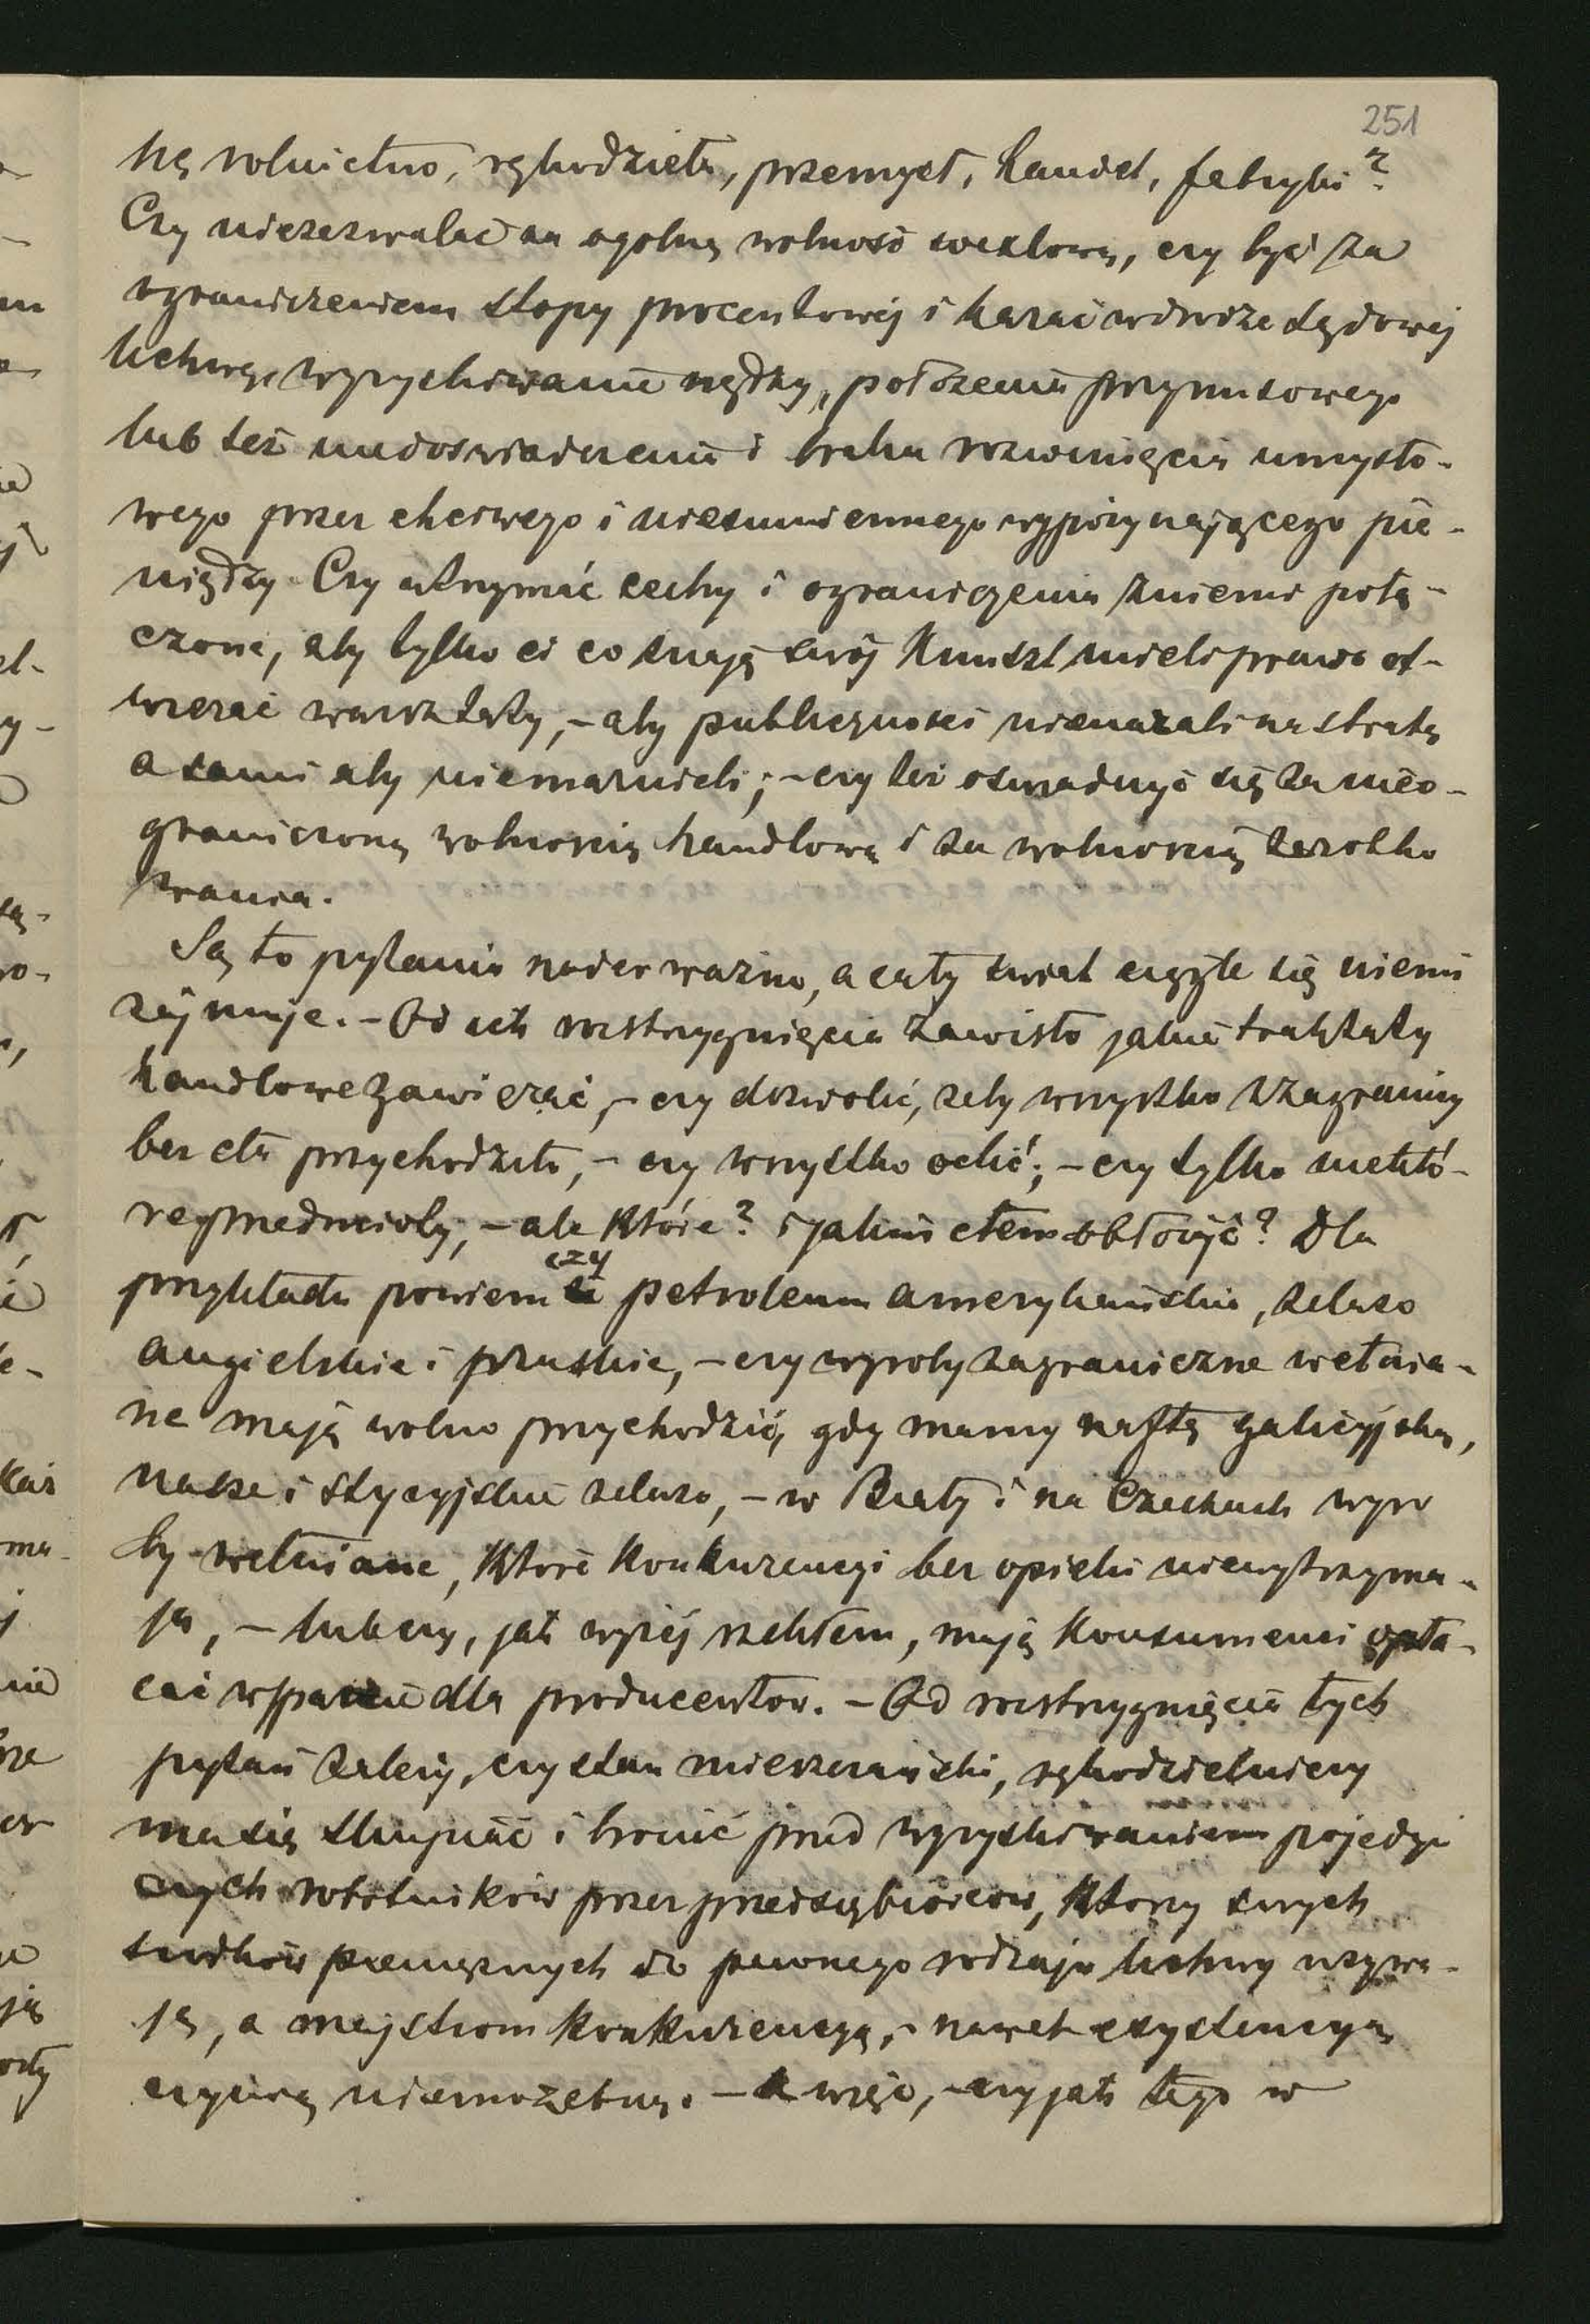 251
kę rolnictwo, rękodzieła, przemysł, handel, fabryki?
Czy niezezwalać na ogólną wolność wexlową, czy być za
ograniczeniem stopy procentowéj i karać w drodze sądowéj
lichwę, wyzyskiwanie nędzy, położenia przymusowego
lub też niedoświadczenia i braku rozwinięcia umysło-
wego przez chciwego i niesumiennego wypożyczającego pie-
niędzy. Czy utrzymać cechy i ograniczenia z niemi połą-
czone, aby tylko ci co znają swój kunszt mieli prawo ot-
wierać warsztaty, – aby publiczności nienarażali na stratę
a sami aby niemarnieli; – czy też oświadczyć się za nieo-
graniczoną wolnością handlową i za wolnością zarobko
wania.
Są to pytania nader ważne, a cały świat czyste się niemi
zajmuje. – Od ich rozstrzygnięcia zawisło jakie traktaty
handlowe zawierać, – czy dozwolić, żeby wszystko z zagranicy
bez cła przychodziło, – czy wszystko oclić; – czy tylko niektó-
re przedmioty, – ale które? i jakim cłem obłożyć? Dla
przykładu powiem czy petroleum amerykańskie, żelazo
angielskie i pruskie, – czy wyroby zagraniczne wełnia-
ne mają wolno przychodzić, gdy mamy naftę galicyjską,
nasze i styryjskie żelazo, – w Biały i na Czechach wyro
by wełniane, które konkurencyi bez opieki niewytrzyma-
ją, – lub czy, jak wyżéj rzekłem, mają konsumenci opła-
cać wsparcie dla producentów. – Od rozstrzygnięcia tych
pytań zależy, czy stan mieszczański, rękodzielniczy
ma się skupiać i bronić przed wyzyskiwaniem pojedyń
czych robotników przez przedsiębiorców, którzy swych
środków pieniężnych do pewnego rodzaju lichwy używa-
ją, a majstrom konkurencyą, – nawet exystencyą
czynią niemożebną. – A więc, – czy jak tego w